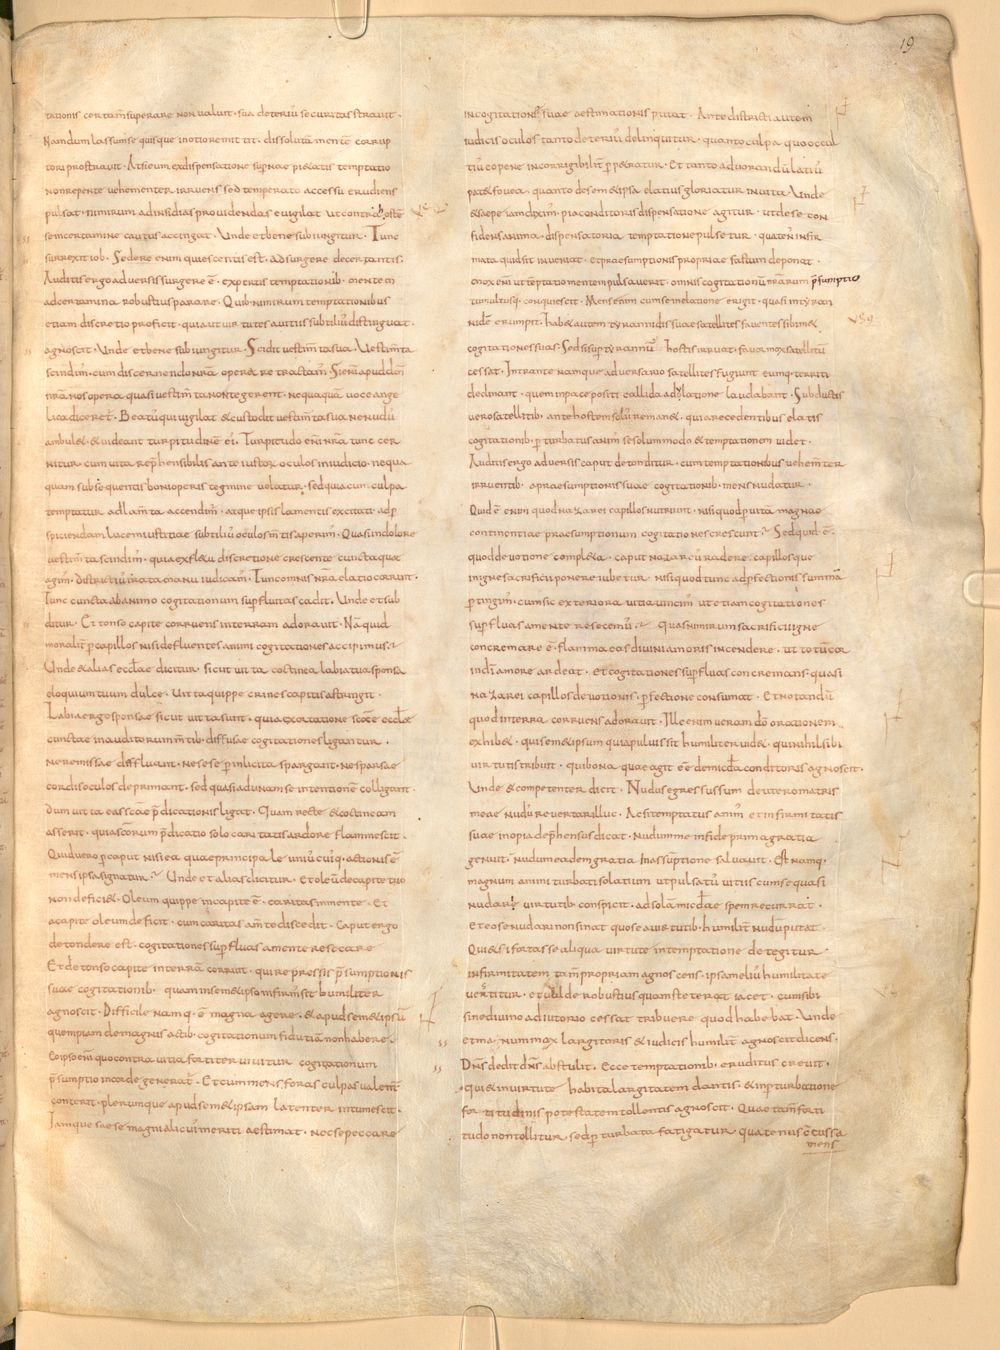 19
tationis certam̄ superare non valuit · sua deteriꝰ securitas stravit ·
Nam dum lassum se quisque in otio remittit · dissolutā mentē corrup
tori prostravit · At si eum ex dispensatione supnae pietatis temptatio
non repente vehementer irruens sed temperato accessu erudiens
pulsat · nimirum ad insidias providendas evigilat ut contra hostē
se in certamine cautus accingat · Unde et bene subiungitur · Tunc
surrexit iob · Sedere enim quiescentis est · ad surgere decertantis ·
Auditis ergo adversis surgere ē · expertis temptationib · mentem
ad certamina robustius parare · Quib nimirum temptationibus
etiam discretio proficit · quia virtutes a vitiis subtiliꝰ distinguat ·
agnoscit · Unde et bene subiungitur · Scidit vestim̄ta sua · Vestim̄ta
scindimꝰ · cum discernendo nr̄a opera retractamꝰ · Si enī apud dm̄
nr̄a nos opera quasi vestim̄ta non tegerent · nequaquā voce ange
lica diceretꝰ · Beatꝰ qui vigilat & custodit vestim̄ta sua ne nudꝰ
ambul& · & videant turpitudinē ei · Turpitudo enī nr̄a tunc cer
nitur · cum vita rephensibilis ante iustoꝝ oculos in iudicio · nequa
quam subsequentis boni operis tegmine velatur · sed quia cum culpa
temptatur ad lam̄ta accendimꝰ · atque ipsis lamentis excitati · ad p
spiciendam lucem iustitiae subtiliꝰ oculos m̄tis aperimꝰ · Quasi in dolore
vestim̄ta scindimꝰ · quia ex fletu discretione crescente cuncta quae
agimꝰ · districtiꝰ irata manu iudicamꝰ · Tunc omnis nr̄a elatio corruit ·
Tunc cuncta ab animo cogitationum supfluitas cadit · Unde et sub
ditur · Et tonso capite corruens in terram adoravit · Nā quid
moralitꝰ p capillos nisi defluentes animi cogitationes accipimus
Unde & alias eccl̄ae dicitur · sicut vitta coccinea labia tua sponsa
eloquium tuum dulce · Vitta quippe crines capitis astringit ·
Labia ergo sponsae sicut vitta sunt · quia exortatione scae eccl̄ae
cunctae in auditorum m̄tib · diffusae cogitationes ligantur ·
ne remissae diffluant · ne sese p inlicita spargant · ne sparsae
cordis oculos deprimant · sed quasi ad unam se intentionē colligant ·
dum vitta eas scae p̄dicationis ligat · Quam recte & coccineam
asserit · quia scorum p̄dicatio solo caritatis ardore flammescit ·
Quid vero p caput nisi ea quae principale uniꝰ cuiꝰq · actionis ē
mens ipsa signatur · Unde et alias dicitur · Et oleū de capite tuo
non deficiet · Oleum quippe in capite ē · caritas in mente · Et
a capite oleum deficit · cum caritas a m̄te discedit · Caput ergo
detondere est · cogitationes supfluas a mente resecare
Et detonso capite in terrā corruit · qui repressis p̄sumptionis
suae cogitationib · quam in semetipso infirmꝰ sit humiliter
agnoscit · Difficile namq · ē magna agere · & apud sem&ipsū
quempiam de magnis actib · cogitationum fidutiam non habere ·
Eo ipso enī quo contra vitia fortiter vivitur cogitationum
p̄sumptio in corde generatꝰ · Et cum mens foras culpas valentꝰ
conterit · plerumque apud sem&ipsam latenter intumescit ·
Iamque sese magni alicuiꝰ meriti aestimat · nec se peccare
in cogitationibꝰ suae aestimationis putat · Ante districti autem
iudicis oculos tanto deteriꝰ delinquitur · quanto culpa quo occul
tiꝰ eo pene incorrigibilitꝰ p p&ratur · Et tanto ad vorandū latiꝰ
pat& fovea · quanto de semetipsa elatius gloriatur in vita · Unde
& saepe iam diximꝰ · pia conditoris dispensatione agitur · ut de se con
fidens anima · dispensatoria temptatione pulsetur · quatenꝰ infir
mata quid sit inveniat · et praesumptionis propriae fastum deponat ·
mox enī ut temptatio mentem pulsaverit · omnis cogitationū nr̄arum p̄sumptio
tumultusq · conquiescit · Mens enī cum se in elatione erigit · quasi in tyran
nidē erumpit · Hab& autem tyrannidis suae satellites faventes sibimet
cogitationes suas · Sed si sup tyrannū hostis irruat · favor mox satellitū
cessat · Intrante namque adversario satellites fugiunt eumq · territi
declinant · quem in pace positi callida adulatione laudabant · Subductis
vero satellitib · ante hostem solꝰ remanet · quia recedentibus elatis
cogitationib · pturbatus animꝰ se solummodo & temptationem videt ·
Auditis ergo adversis caput detonditur · cum temptationibus vehem̄ter
irruentib · a praesumptionis suae cogitationib · mens nudatur ·
Quid ē enim quod nazarei capillos nutriunt · nisi quod p vitā magnae
continentiae praesumptionum cogitationes crescunt · Sed quid ē ·
quod devotione compl&a · caput nazareꝰ radere · capillosque
in igne sacrificii ponere iubetur · nisi quod tunc ad pfectionis summā
ptingimꝰ · cum sic exteriora vitia vincimꝰ ut etiam cogitationes
supfluas a mente resecemꝰ · Quas nimirum sacrificii igne
concremare ē · flamma eas divini amoris incendere · ut totū cor
in dī amore ardeat · et cogitationes supfluas concremans · quasi
nazarei capillos devotionis pfectione consumat · Et notandū
quod in terra corruens adoravit · Ille enim veram dō orationem
exhibet · qui semetipsum quia pulvis sit humiliter videt · qui nihil sibi
virtutis tribuit · qui bona quae agit eē de mīcdia conditoris agnoscit ·
Unde & competenter dicit · Nudus egressus sum de utero matris
meae nudꝰ revertar illuc · Ac si temptatus animꝰ et infirmitatis
suae inopia dephensꝰ dicat · Nudum me in fide prima gratia
genuit · nudum eadem gratia in assumptione salvavit · Est namq ·
magnum animi turbati solatium ut pulsatꝰ vitiis cum se quasi
nudatū virtutib · conspicit · ad solam mīcdiae spem recurrat ·
Et eo se nudari non sinat quo se a virtutib · humilitꝰ nudū putat ·
Qui etsi fortasse aliqua virtute in temptatione detegitur
infirmitatem tam̄ propriam agnoscens · ipsa meliꝰ humilitate
vestitur · et valde robustius quam steterat iacet · cum sibi
sine divino adiutorio cessat tribuere quod habebat · Unde
et manum mox largitoris & iudicis humilitꝰ agnoscit dicens ·
Dn̄s dedit dn̄s abstulit · Ecce temptationib · eruditus crevit ·
qui et in virtute habita largitatem dantis · & in pturbatione
fortitudinis potestatem tollentis agnoscit · Quae tam̄ forti
tudo non tollitur · sed pturbata fatigatur · quatenus cōcussa
mens